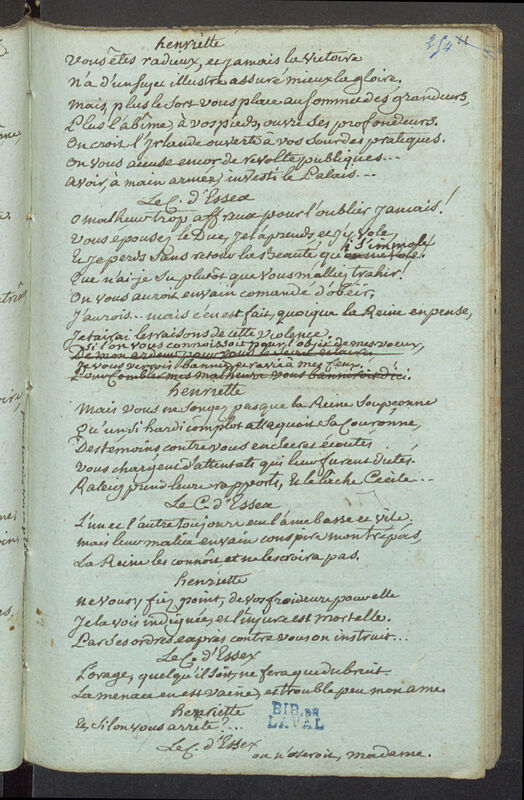 254
henriette
vous êtes radieux, et jamais la victoire
n'a d'un sujet illustre assuré mieux la gloire.
mais, plus le sort vous place au sommet des grandeurs,
Plus l'abîme à vos pieds, ouvre ses profondeurs.
On croit l'Irlande ouverte à vos sourdes pratiques.
On vous accuse encor de révoltes publiques...
avoir, à main armée, investi le Palais...
Le C. d'Essex
O malheur trop affreux pour l'oublier jamais!
Vous épousez le Duc, je l'aprends, et j'y vole,
Et je perds sans retour la beauté qu'on
il s'immole
Que n'ai-je su plutôt que vous m'alliez trahir!
On vous auroit en vain comandé d'obéir,
J'aurois... mais c'en est fait, quoique la Reine en pense,
Je tairai les raisons de cette violence.
Si l'on vous connoissoit pour l'objet de mes voeux,
De mon ardeur pour vous le secret
Je vous verrois bannie, et ravie à mes feux.
Pour combler mes malheurs vous banniroit d'ici.
henriette
Mais vous ne songez pas que la Reine soupçonne
Qu'un si hardi complot attaquoit sa Couronne,
Des témoins contre vous en secret écoutés
Vous chargent d'attentats qui leur furent dictés.
Raleig prend leurs rapports, et le lâche Cécile...
Le C. d'Essex
L'un et l'autre toujours eut l'âme basse et vile.
mais leur malice en vain conspire mon trépas,
La Reine les connoît et ne les croira pas.
henriette
ne vous y fiez point, de vos froideurs pour elle
Je la vois indignée, et l'injure est mortelle.
Par ses ordres exprès contre vous on instruit...
Le C. d'Essex
L'orage, quelqu'il soit, ne fera que du bruit.
La menace en est vaine, et trouble peu mon ame.
henriette
Et si l'on vous arrête?...
BIB. DE
LAVAL
Le C. d'Essex
on n'oseroit, madame.